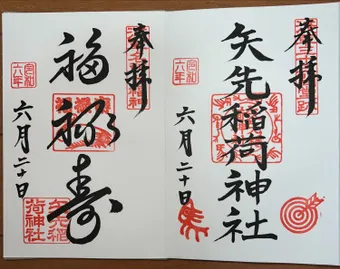 奉拝
矢先稲荷神社
令和
六年
六月二十日
馬
奉拝
福禄寿
令和
六年
六月二十日
矢先稲
荷神社